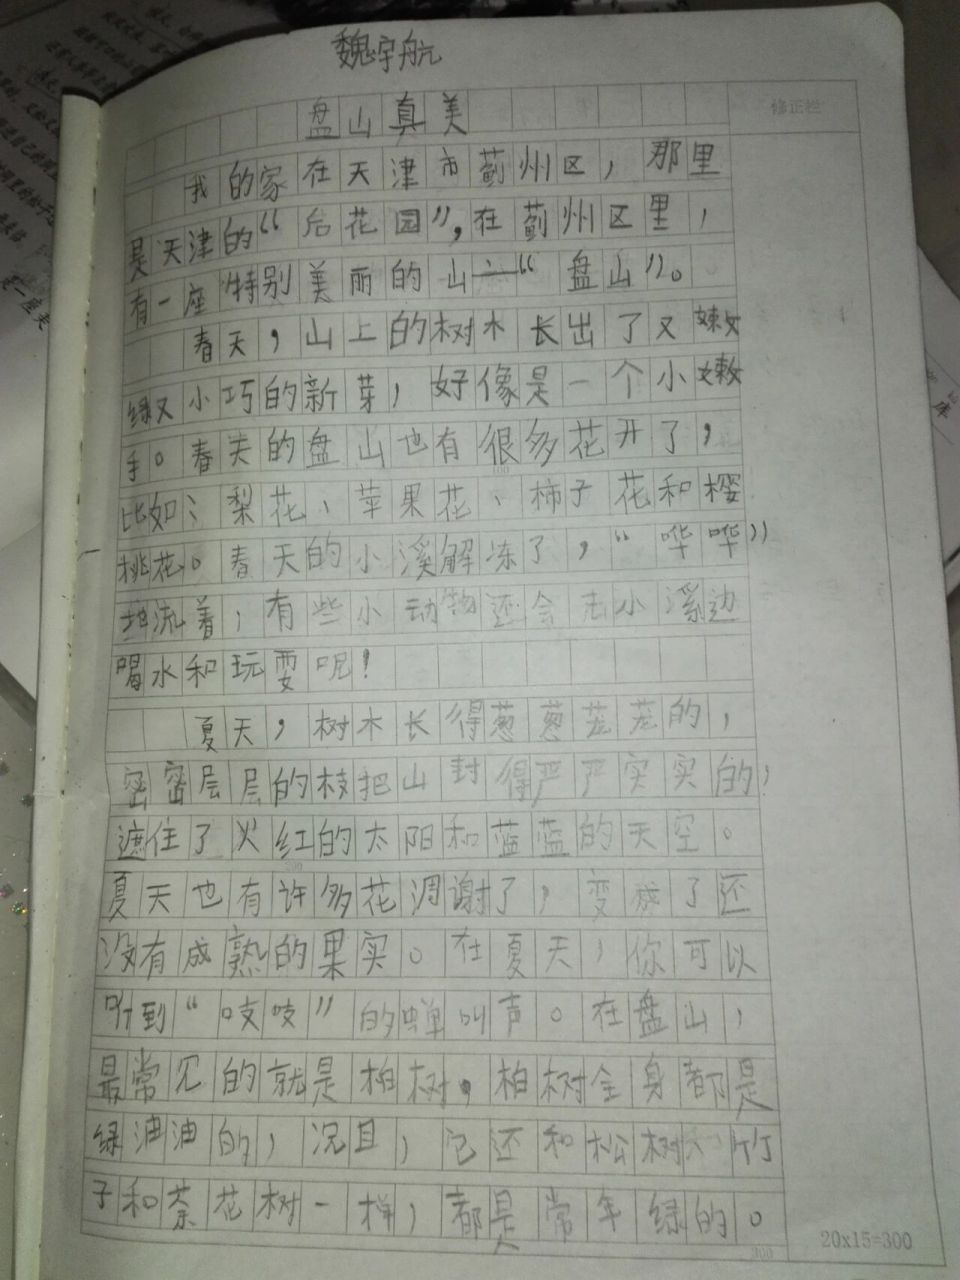 魏宇航
盘山真美
修正栏
我的家在天津市蓟州区，那里
是天津的“后花园”，在蓟州区里，
有一座特别美丽的山——“盘山”。
春天，山上的树木长出了又嫩
绿又小巧的新芽，好像是一个小嫩
手。春天的盘山也有很多花开了，
比如：梨花、苹果花、柿子花和樱
桃花。春天的小溪解冻了，“哗哗”
地流着，有些小动物还会去小溪边
喝水和玩耍呢！
夏天，树木长得葱葱茏茏的，
密密层层的枝把山封得严严实实的，
遮住了火红的太阳和蓝蓝的天空。
夏天也有许多花凋谢了，变成了还
没有成熟的果实。在夏天，你可以
听到“吱吱”的蝉叫声。在盘山，
最常见的就是柏树，柏树全身都是
绿油油的，况且，它还和松树、竹
子和茶花树一样，都是常年绿的。
20x15=300